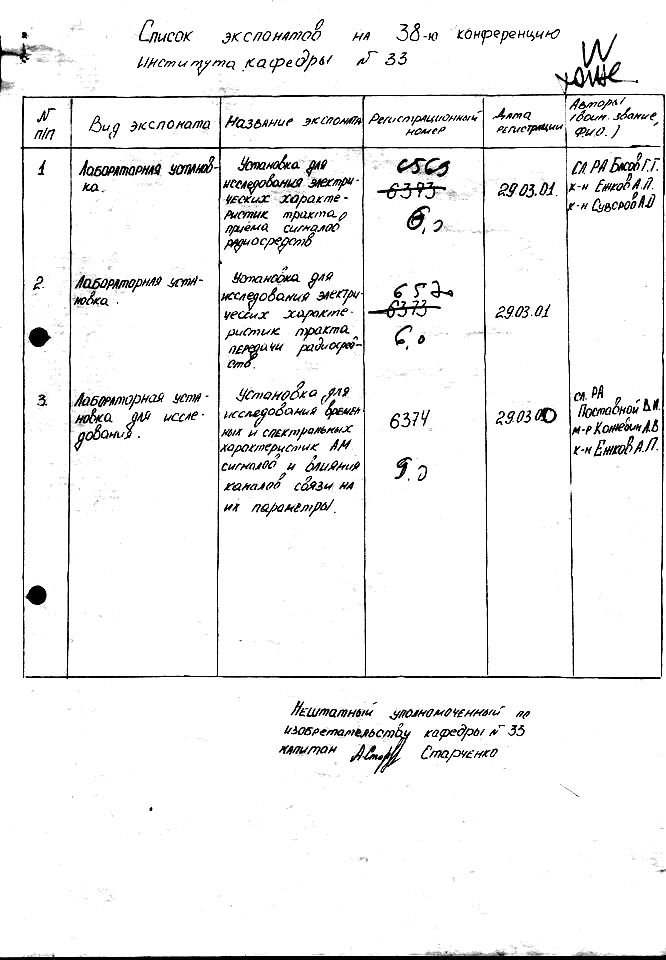 Список экспонатов на 38-ю конференцию
института кафедры № 33
N п/п
Вид экспоната
Название экспоната
Регистрационный номер
Дата регистрации
Авторы (воин. звание, Ф.И.О.)
1
Лабораторная установ-
ка.
Установка для
исследования электри-
ческих характе-
ристик тракта
приема сигналов
радиосредств
6373
6,0
29.03.01.
сл. РА Басов Г.Г.
к-н Ежков А.П.
к-н Суворов А.О
2.
Лабораторная уста-
новка.
Установка для
исследования электри-
ческих характе-
ристик тракта
передачи радиосред-
ств.
6373
6,0
29.03.01
3.
Лабораторная уста-
новка для иссле-
дования.
Установка для
исследования времен-
ных и спектральных
характеристик АМ
сигналов и влияния
каналов связи на
их параметры.
6374
9.0
29.03
сл. РА
Поставной В.И.
м-р Кожевин А.В
к-н Ежков А.П.
Нештатный уполномоченный по
изобретательству кафедры № 33
капитан Старченко